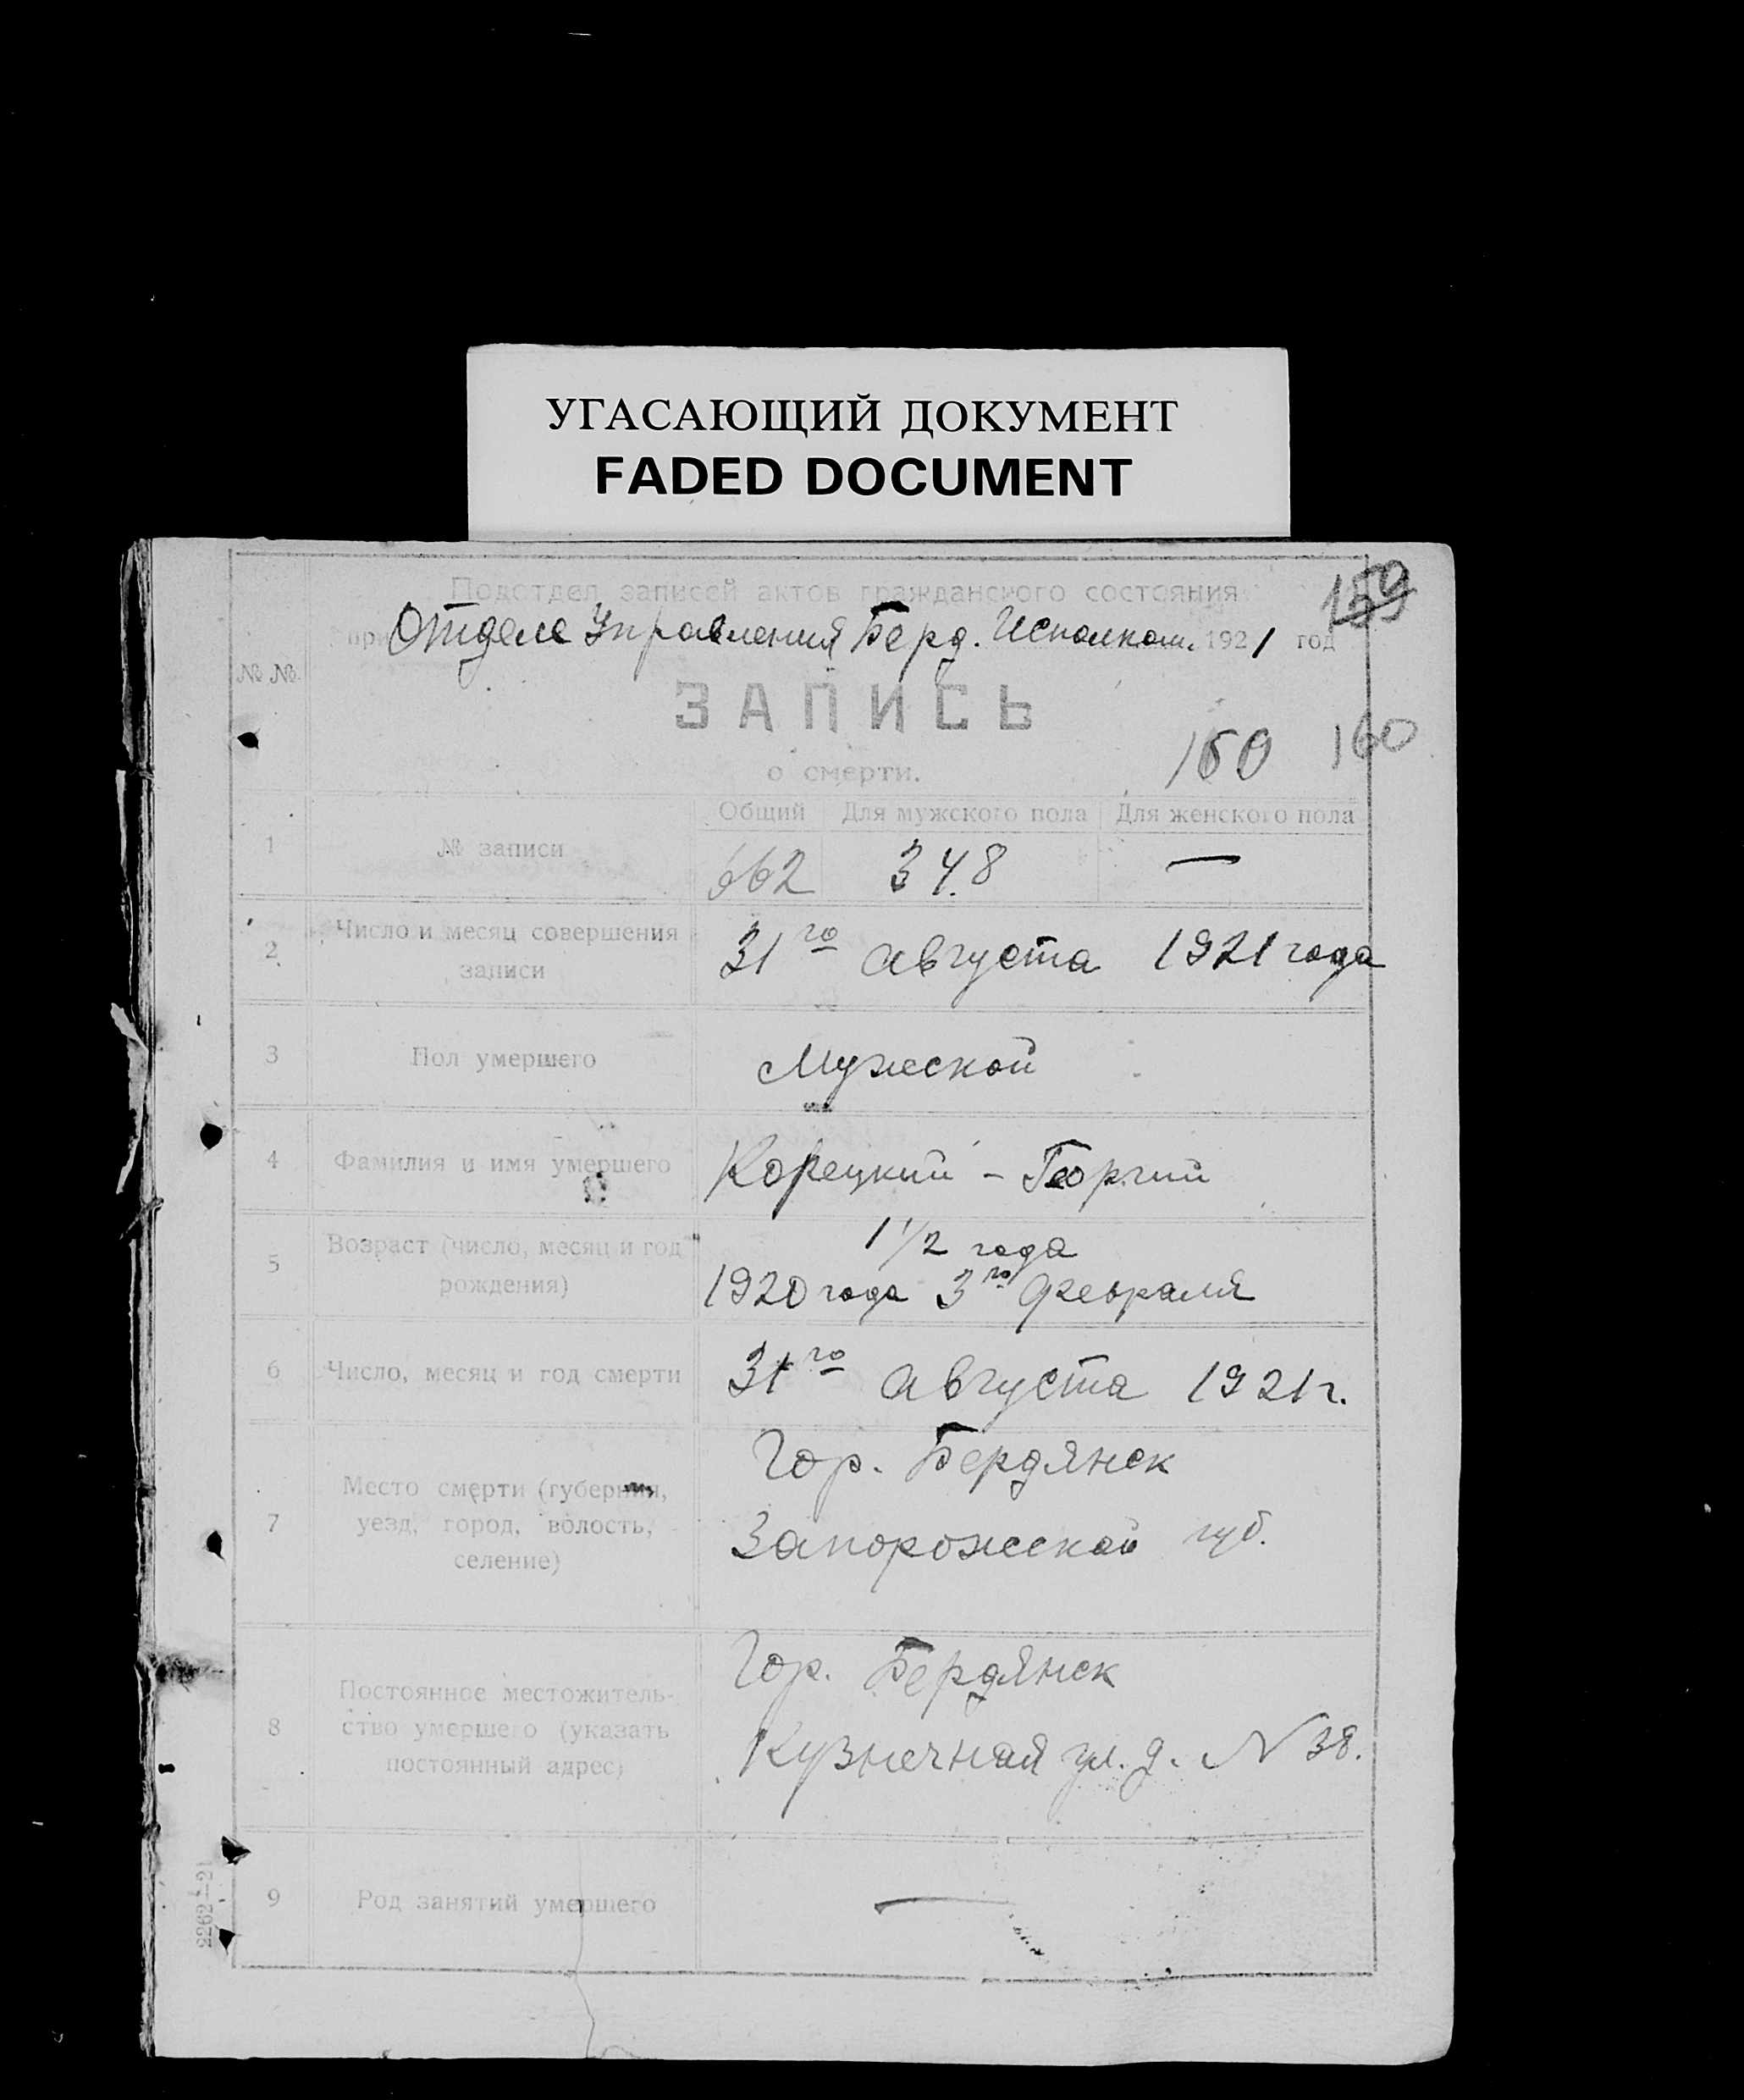 УГАСАЮЩИЙ ДОКУМЕНТ
FADED DOCUMENT
Подотдел записей актов гражданского состояния
159
при Отделе Управления Берд. Исполком. 1921 год
№ №
ЗАПИСЬ
160 160
о смерти.
Общий Для мужского пола Для женского пола
1 № записи 662 348 —
2 Число и месяц совершения
записи
31го августа 1921 года
3 Пол умершего Мужской
4 Фамилия и имя умершего Корецкий - Георгий
5 Возраст (число, месяц и год
рождения)
1 1/2 года
1920 года 3го февраля
6 Число, месяц и год смерти 31го августа 1921 г.
7 Место смерти (губерния,
уезд, город, волость,
селение)
Гор. Бердянск
Запорожской губ.
8 Постоянное местожитель-
ство умершего (указать
постоянный адрес)
Гор. Бердянск
Кузнечная ул. д. N 38.
9 Род занятий умершего —
2262—21